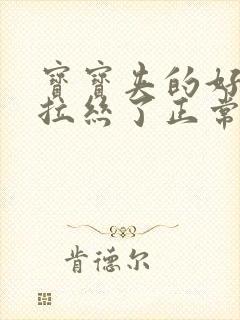 寶寶夹的好
拉絲了正常
肯德尔